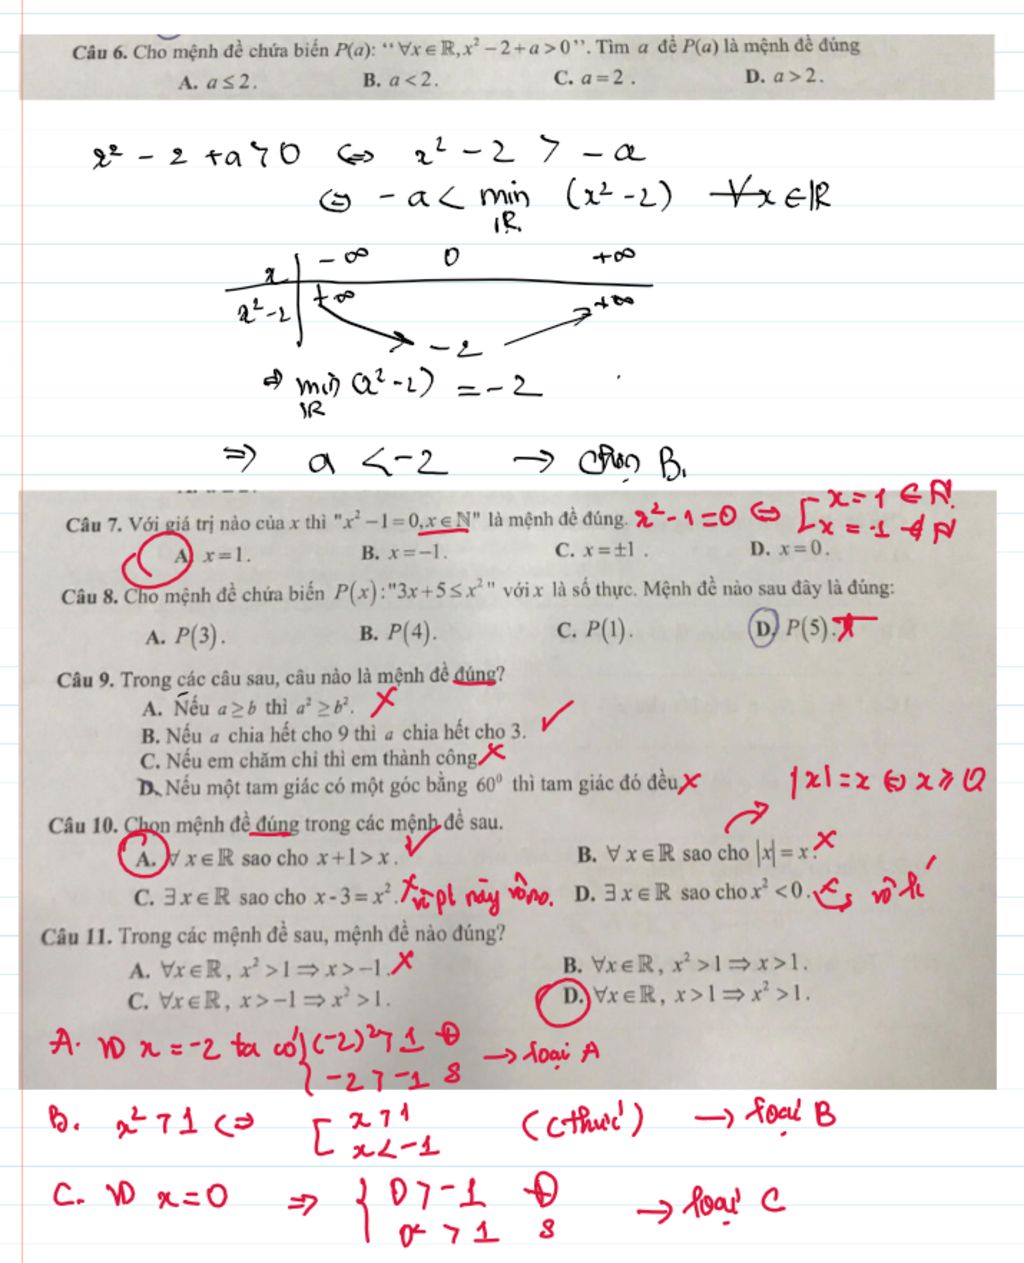 Câu 6. Cho mệnh đề chứa biến P(a): "∀x∈ℝ, x² − 2 + a > 0". Tìm a để P(a) là mệnh đề đúng
A. a ≤ 2. B. a < 2. C. a = 2. D. a > 2.
x² − 2 + a > 0 ⇔ x² − 2 > −a
⇔ −a < min (x² − 2) ∀x ∈ ℝ
ℝ
x −∞ 0 +∞
x² − 2 +∞ −2 +∞
⇒ min (x² − 2) = −2
ℝ
⇒ a < −2 → chọn B.
Câu 7. Với giá trị nào của x thì "x² − 1 = 0, x ∈ ℕ" là mệnh đề đúng. x² − 1 = 0 ⇔ [ x = 1 ∈ ℕ
x = −1 ∉ ℕ
A. x = 1. B. x = −1. C. x = ±1. D. x = 0.
Câu 8. Cho mệnh đề chứa biến P(x): "3x + 5 ≤ x²" với x là số thực. Mệnh đề nào sau đây là đúng:
A. P(3). B. P(4). C. P(1). D. P(5).
Câu 9. Trong các câu sau, câu nào là mệnh đề đúng?
A. Nếu a ≥ b thì a² ≥ b².
B. Nếu a chia hết cho 9 thì a chia hết cho 3.
C. Nếu em chăm chỉ thì em thành công
D. Nếu một tam giác có một góc bằng 60⁰ thì tam giác đó đều
|x| = x ⇔ x ≥ 0
Câu 10. Chọn mệnh đề đúng trong các mệnh đề sau.
A. ∀x∈ℝ sao cho x + 1 > x. B. ∀x∈ℝ sao cho |x| = x.
C. ∃x∈ℝ sao cho x - 3 = x². vì pt này vô no. D. ∃x∈ℝ sao cho x² < 0. vô lí
Câu 11. Trong các mệnh đề sau, mệnh đề nào đúng?
A. ∀x∈ℝ, x² > 1 ⇒ x > −1. B. ∀x∈ℝ, x² > 1 ⇒ x > 1.
C. ∀x∈ℝ, x > −1 ⇒ x² > 1. D. ∀x∈ℝ, x > 1 ⇒ x² > 1.
A. VD x = −2 ta có { (−2)² > 1 Đ
−2 > −1 S → loại A
B. x² > 1 ⇔ [ x > 1
x < −1 (cthức) → loại B
C. VD x = 0 ⇒ { 0 > −1 Đ
0² > 1 S → loại C